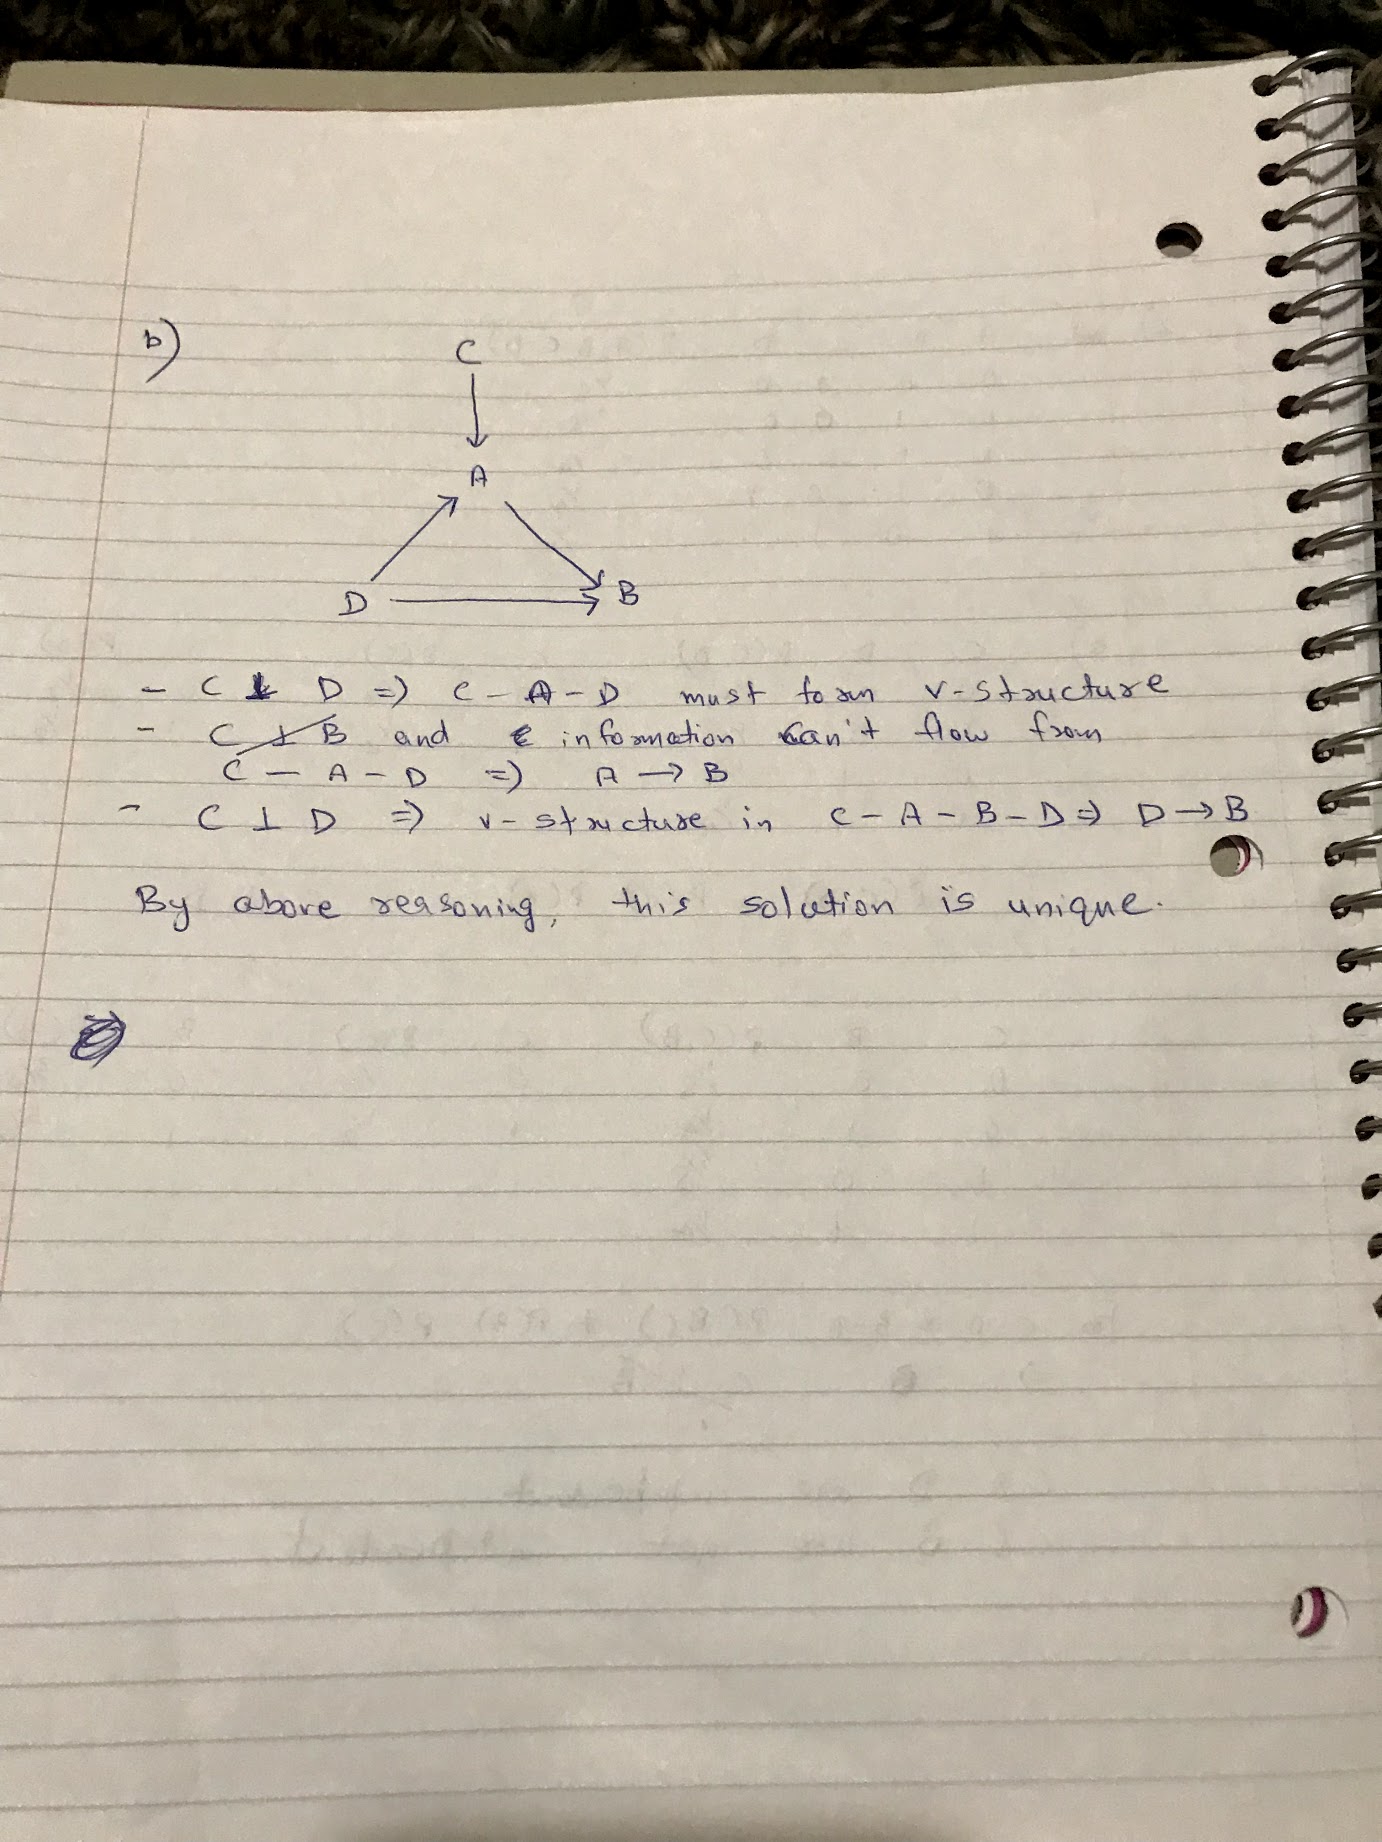 b)
C
A
D B
- C ⊥ D => C - A - D must form v-structure
- C ⊥̸ B and information can't flow from
C - A - D => A → B
- C ⊥ D => v-structure in C - A - B - D => D → B
By above reasoning, this solution is unique.